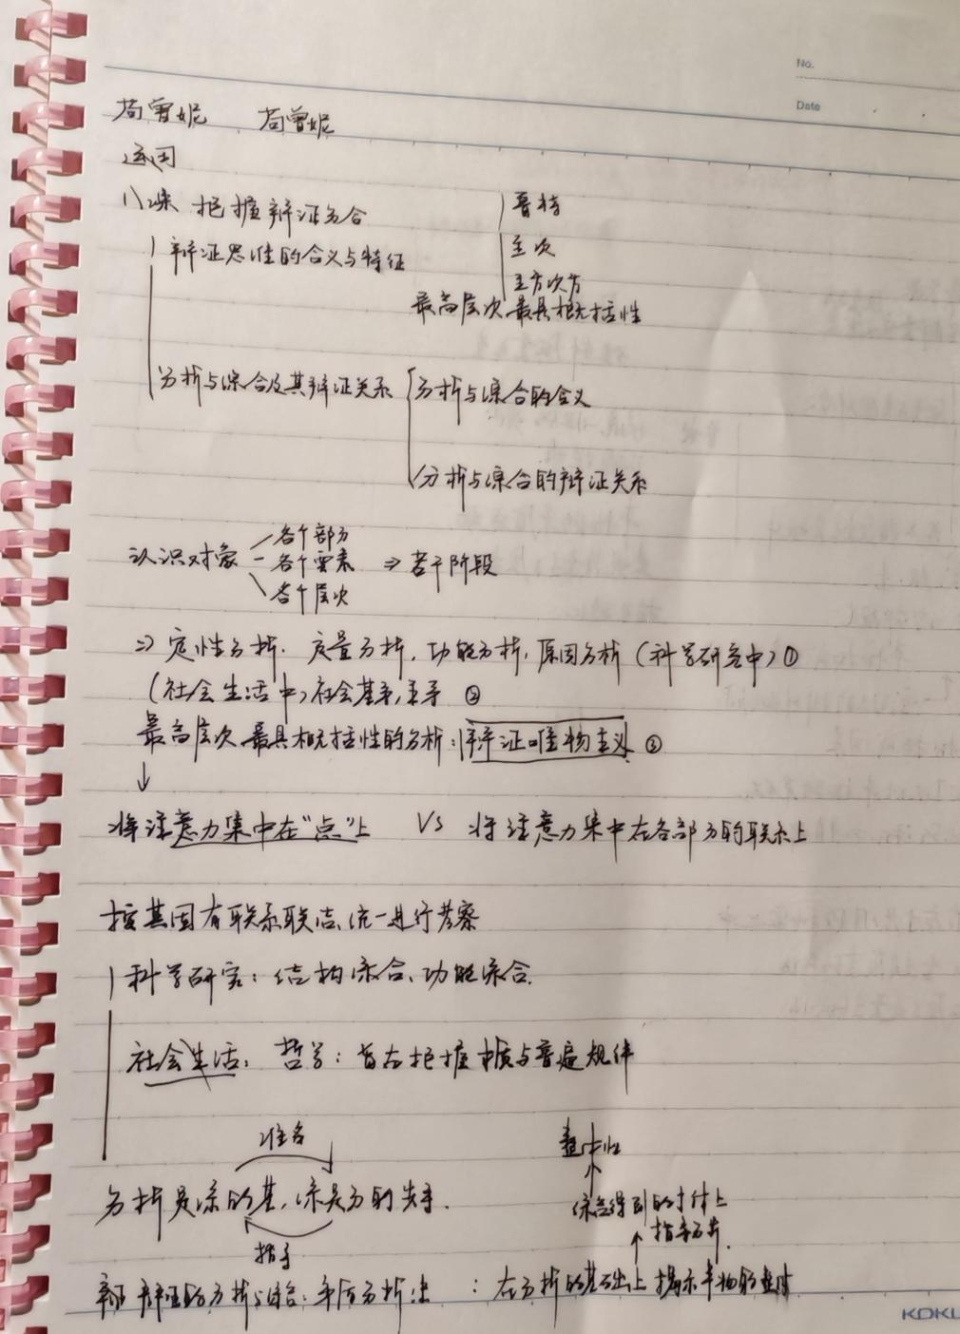 No.
Date
苟曾妮 苟曾妮
八课 把握辩证分合
普特
辩证思维的含义与特征
主次
主方次方
最高层次 最具概括性
分析与综合及其辩证关系
分析与综合的含义
分析与综合的辩证关系
各个部分
认识对象 各个要素 ⇒ 若干阶段
各个层次
⇒ 定性分析、定量分析、功能分析、原因分析(科学研究中)①
(社会生活中)社会基矛,主矛 ②
最高层次 最具概括性的分析:辩证唯物主义 ③
↓
将注意力集中在"点"上 VS 将注意力集中在各部分的联系上
按其固有联系联结、统一进行考察
科学研究:结构综合、功能综合
社会生活; 哲学:旨在把握本质与普遍规律
准备
整体性
分析是综的基,综是分的先导.
综合得到的才体上
指导分析.
指导
辩证的分析与综合:矛盾分析法 :在分析的基础上揭示事物的整体
KOKU